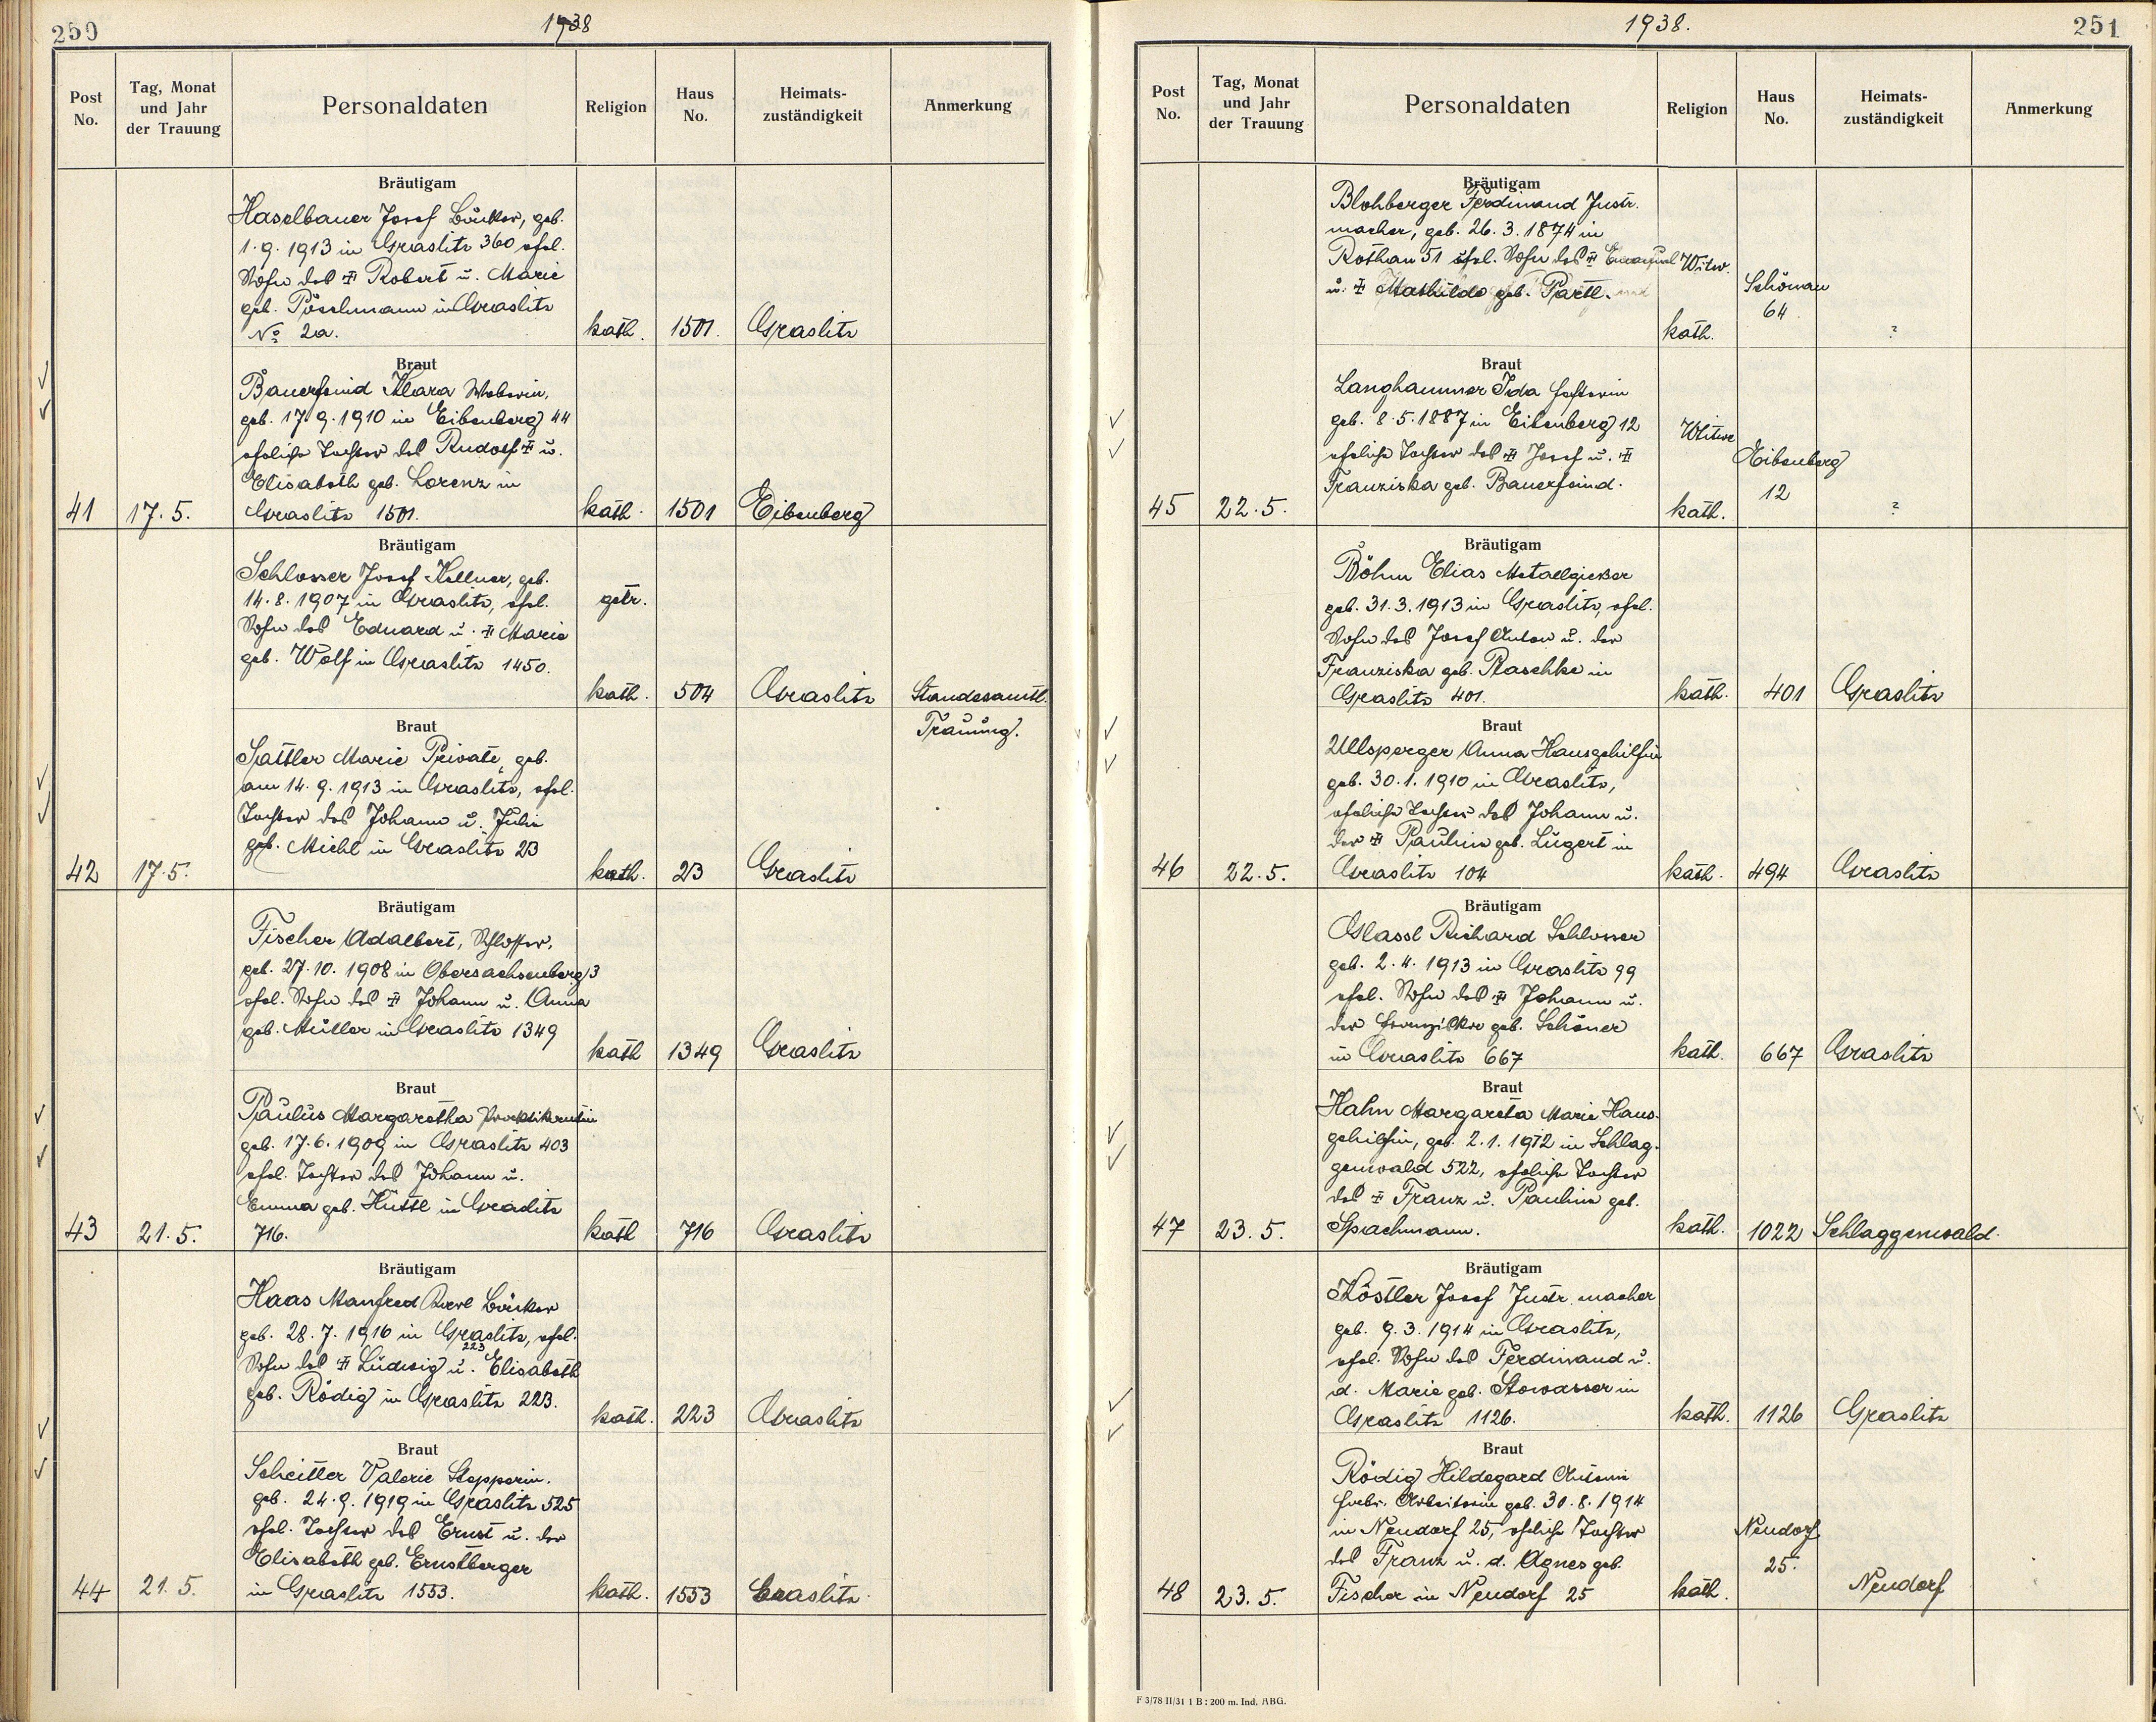 250
1938
Post No.
Tag, Monat und Jahr der Trauung
Personaldaten
Religion
Haus No.
Heimats-zuständigkeit
Anmerkung
Bräutigam
Haselbauer Josef Bäcker, geb.
1.9.1913 in Graslitz 360 ehel.
Sohn des ± Robert u. Marie
geb. Pöschmann in Graslitz
No 2a.
kath.
1501.
Graslitz
Braut
Bauerfeind Klara Weberin,
geb. 17.9.1910 in Eibenberg 44
eheliche Tochter des Rudolf ± u.
Elisabeth geb. Lorenz in
Graslitz 1501.
41
17.5.
kath.
1501
Eibenberg
Bräutigam
Schlosser Josef Kellner, geb.
14.8.1907 in Graslitz, ehel.
getr.
Sohn des Eduard u. ± Marie
geb. Wolf in Graslitz 1450.
kath.
504
Graslitz
Standesamtl.
Trauung.
Braut
Sattler Marie Private, geb.
am 14.9.1913 in Graslitz, ehel.
Tochter des Johann u. Julie
geb. Michl in Graslitz 23
42
17.5.
kath.
23
Graslitz
Bräutigam
Fischer Adalbert, Schlosser,
geb. 27.10.1908 in Obersachsenberg 3
ehel. Sohn des ± Johann u. Anna
geb. Müller in Graslitz 1349
kath
1349
Graslitz
Braut
Paulus Margaretha
geb. 17.6.1909 in Graslitz 403
ehel. Tochter des Johann u.
Emma geb. Hüttl in Graslitz
716.
43
21.5.
kath
716
Graslitz
Bräutigam
Haas Manfred Karl Bäcker
geb. 28.7.1916 in Graslitz, ehel.
223
Sohn des ± Ludwig u. Elisabeth
geb. Rödig in Graslitz 223.
kath.
223
Graslitz
Braut
Scheitler Valerie Stepperin.
geb. 24.9.1919 in Graslitz 525
ehel. Tochter des Ernst u. der
Elisabeth geb. Ernstberger
in Graslitz 1553.
44
21.5.
kath.
1553
Graslitz
1938.
251
Post No.
Tag, Monat und Jahr der Trauung
Personaldaten
Religion
Haus No.
Heimats-zuständigkeit
Anmerkung
Bräutigam
Blohberger Ferdinand Instr.
macher, geb. 26.3.1874 in
Rothau 51 ehel. Sohn des ± Emanuel
Witw.
u. ± Mathilde geb. Partl.
kath.
Schönau
64
?
Braut
Langhammer Ida
geb. 8.5.1887 in Eibenberg 12
eheliche Tochter des ± Josef u. ±
Franziska geb. Bauerfeind.
Witwe
45
22.5.
kath.
Eibenberg
12
?
Bräutigam
Böhm Elias Metallgießer
geb. 31.3.1913 in Graslitz, ehel.
Sohn des Josef Anton u. der
Franziska geb. Raschke in
Graslitz 401.
kath.
401
Graslitz
Braut
Ullsperger Anna Hausgehilfin
geb. 30.1.1910 in Graslitz,
eheliche Tochter des Johann u.
der ± Pauline geb. Lugert in
Graslitz 104
46
22.5.
kath.
494
Graslitz
Bräutigam
Glassl Richard Schlosser
geb. 2.4.1913 in Graslitz 99
ehel. Sohn des ± Johann u.
der Franziska geb. Schöner
in Graslitz 667
kath.
667
Graslitz
Braut
Hahn Margareta Marie Haus-
gehilfin, geb. 2.1.1912 in Schlag-
genwald 522, eheliche Tochter
des ± Franz u. Pauline geb.
Spachmann.
47
23.5.
kath.
1022
Schlaggenwald.
Bräutigam
Köstler Josef Instr. macher
geb. 9.3.1914 in Graslitz,
ehel. Sohn des Ferdinand u.
d. Marie geb. Stowasser in
Graslitz 1126.
kath.
1126
Graslitz
Braut
Rödig Hildegard Antonie
Fabr. Arbeiterin geb. 30.8.1914
in Neudorf 25, eheliche Tochter
des Franz u. d. Agnes geb.
Fischer in Neudorf 25
48
23.5.
kath.
Neudorf
25.
Neudorf
F 3/78 II/31 1 B : 200 m. Ind. ABG.